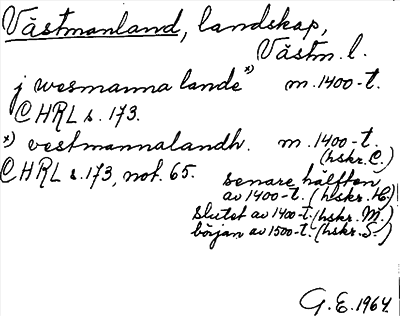 Västmanland, landskap,
Västm. l.
j wesmanna lande*) m. 1400-t.
CHRL s. 173.
*) vestmannalandh. m. 1400-t.
(hskr. C.)
CHRL s. 173, not. 65. senare hälften
av 1400-t. (hskr. H.)
slutet av 1400-t. (hskr. M.)
början av 1500-t. (hskr. S.)
G. E. 1964.